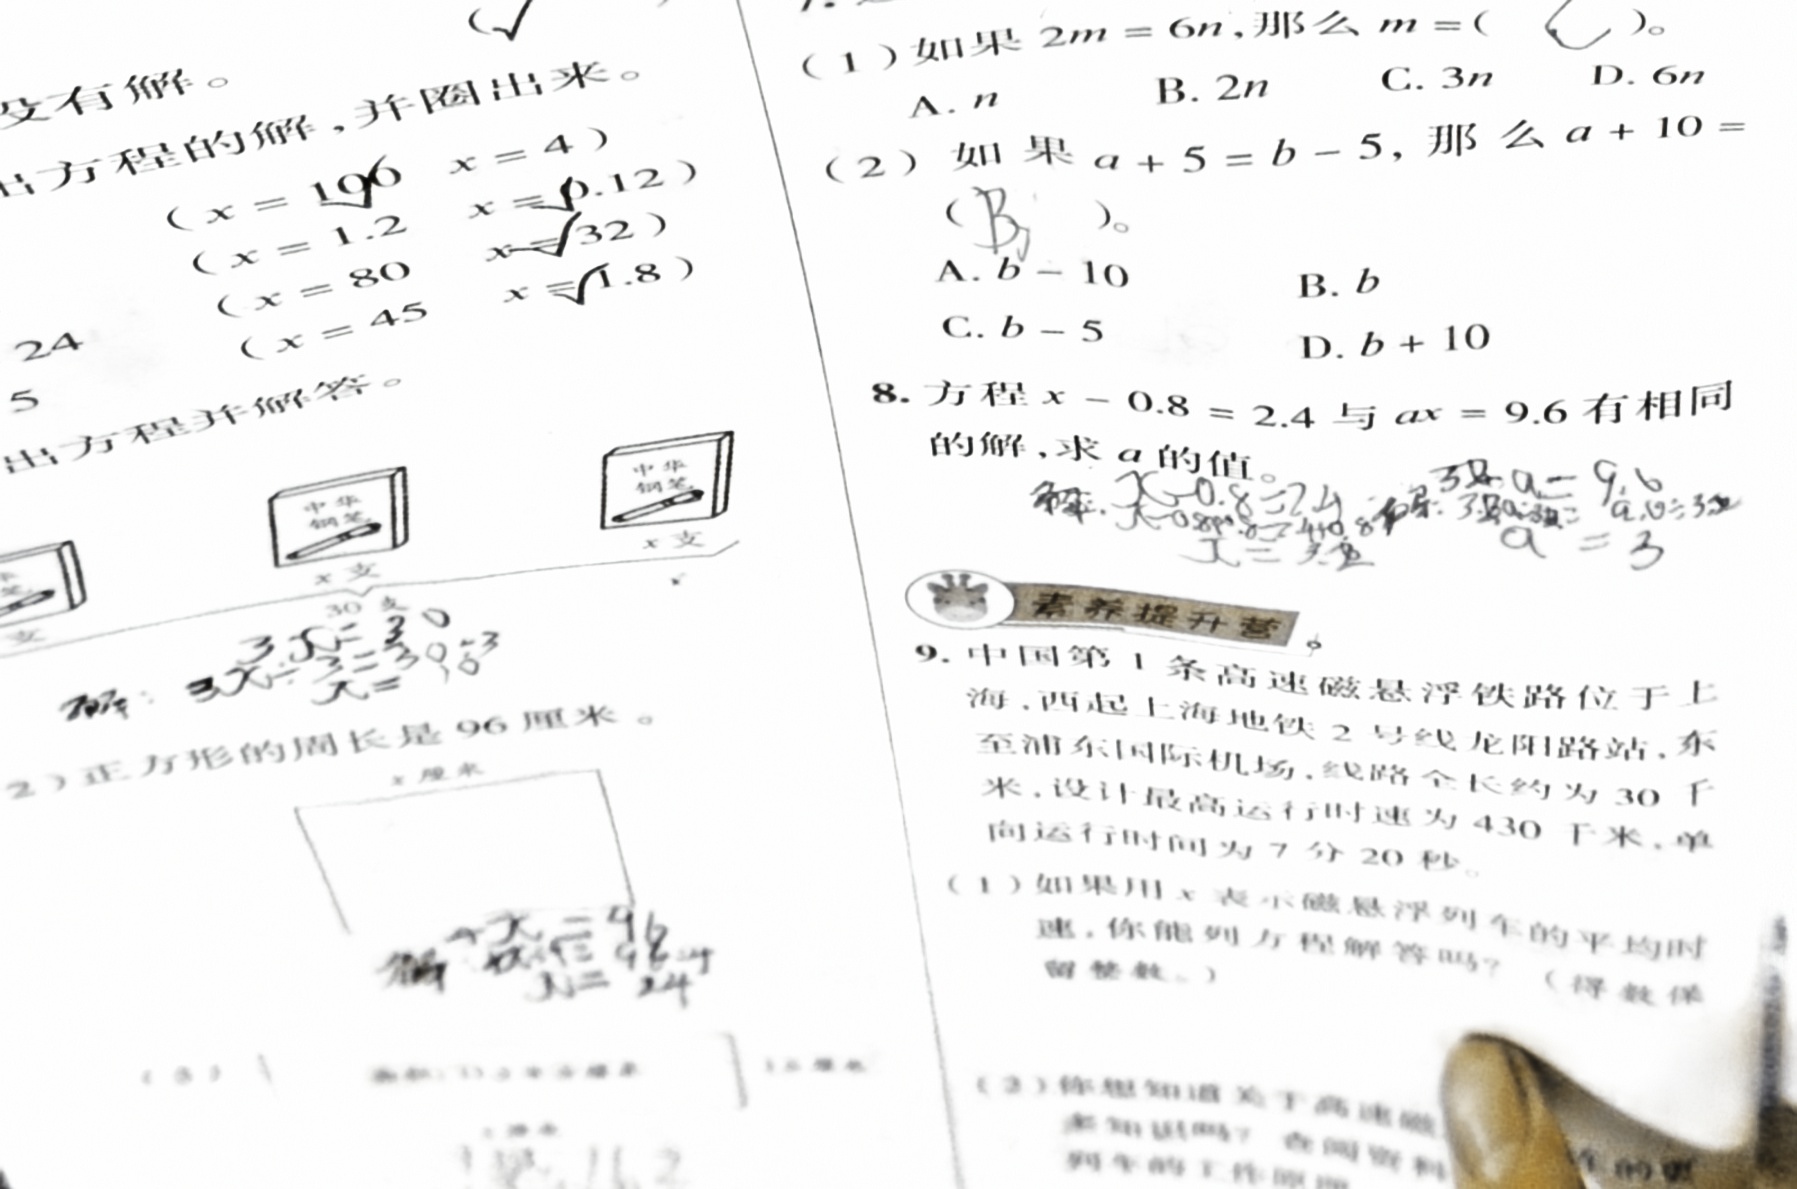 没有解。
出方程的解，并圈出来。
(x = 106 x = 4)
(x = 1.2 x = 0.12)
(x = 80 x = 32)
(x = 45 x = 1.8)
24
5
出方程并解答。
中华
钢笔
x支
中华
钢笔
x支
支
30支
3x=30
解: 3x÷3=30÷3
x=
2)正方形的周长是96厘米。
x厘米
4x=96
解
x=24
(3)
(1)如果 2m = 6n,那么 m =( C )。
A. n B. 2n C. 3n D. 6n
(2) 如果 a + 5 = b - 5, 那么 a + 10 =
( B )。
A. b - 10 B. b
C. b - 5 D. b + 10
8. 方程 x - 0.8 = 2.4 与 ax = 9.6 有相同
的解,求 a 的值。
解: x-0.8=2.4 3.2a=9.6
x-0.8+0.8=2.4+0.8 解:
x=3.2 a=3
素养提升营
9. 中国第1条高速磁悬浮铁路位于上
海,西起上海地铁2号线龙阳路站,东
至浦东国际机场,线路全长约为30千
米,设计最高运行时速为430千米,单
向运行时间为7分20秒。
(1)如果用x表示磁悬浮列车的平均时
速,你能列方程解答吗?(得数保
留整数。)
(2)你想知道关于高速磁
多知识吗? 查阅资料
列车的工作原理